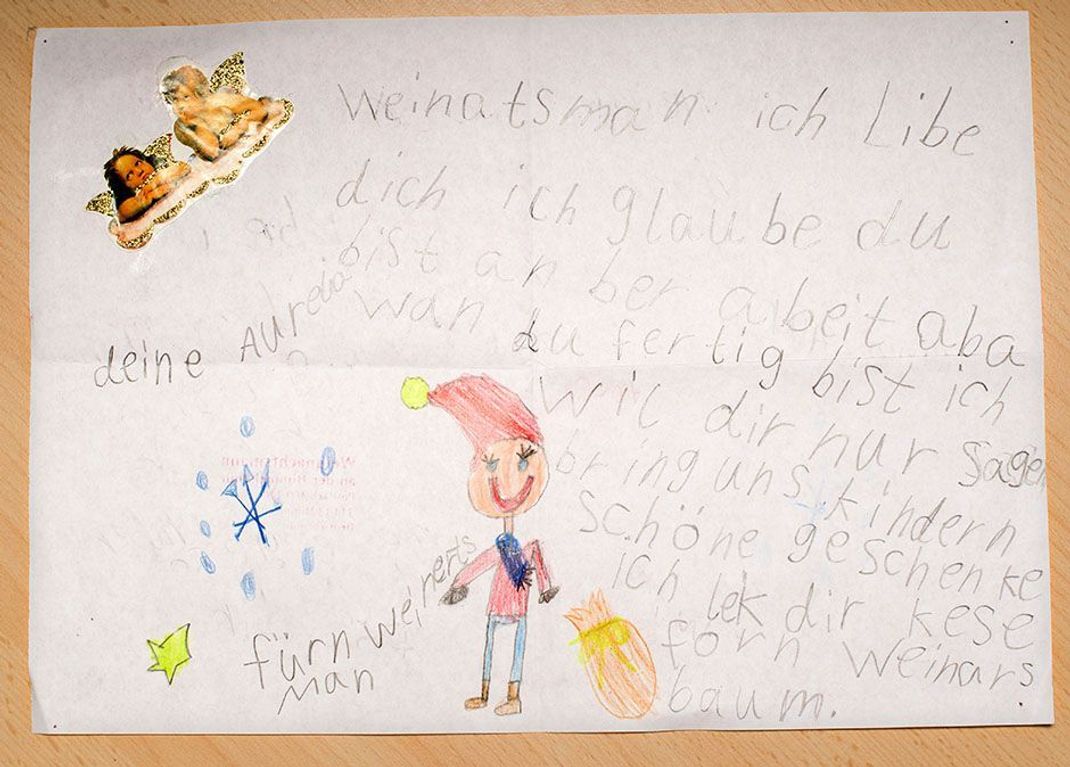 Weinatsman ich Libe
dich ich glaube du
bist an ber arbeit aba
wan du fertig bist ich
wil dir nur sagen
bring uns kindern
schöne geschenke
ich lek dir kese
forn weinars
baum.
deine Aurelia
fürn weinerts
man